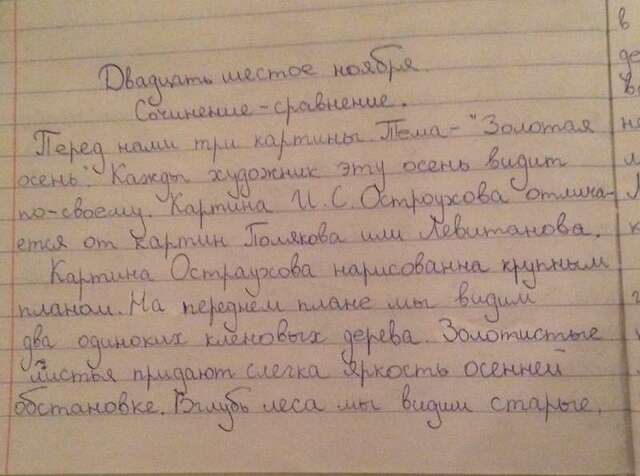 Двадцать шестое ноября.
Сочинение-сравнение.
Перед нами три картины. Тема - "Золотая
осень". Кажды художник эту осень видит
по-своему. Картина И.С. Остроухова отлича-
ется от картин Полякова или Левитанова.
Картина Остраухова нарисованна крупным
планом. На переднем плане мы видим
два одиноких кленовых дерева. Золотистые
листья придают слегка яркость осенней
обстановке. Вглубь леса мы видим старые,